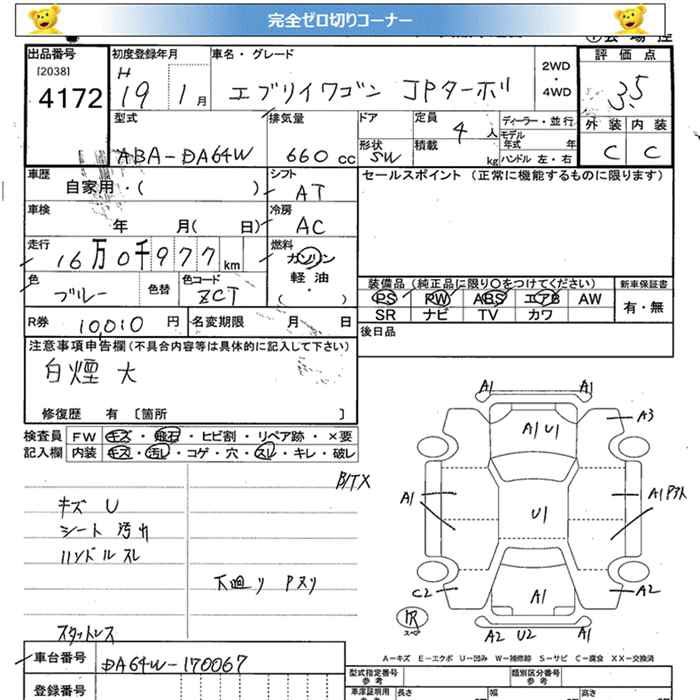 完全ゼロ切りコーナー
出品番号
[2038]
4172
初度登録年月
H
19 1月
車名・グレード
エブリイワゴン JPターボ
2WD
・
4WD
評価点
3.5
外装 内装
C C
型式
ABA-DA64W
排気量
660 cc
ドア
形状
SW
定員
4人
積載
kg
ディーラー・並行
モデル
年式 年
ハンドル 左・右
車歴
自家用・( )
シフト
AT
セールスポイント (正常に機能するものに限ります)
車検
年 月( 日)
冷房
AC
走行
16万0千977km
燃料
ガソリン
軽油
( ・ )
色
ブルー
色替
色コード
ZCT
装備品 (純正品に限り〇をつけてください)
PS PW ABS エアB AW
SR ナビ TV カワ
新車保証書
有・無
R券 10,010 円
名変期限 月 日
後日品
注意事項申告欄(不具合内容等は具体的に記入して下さい)
白煙 大
修復歴 有 〔箇所 〕
検査員
記入欄
FW キズ・飛石・ヒビ割・リペア跡・×要
内装 キズ・汚レ・コゲ・穴・スレ・キレ・破レ
B/TX
キズ U
シート 汚れ
ハンドル スレ
下廻り Pヌリ
スタットレス
A1 A1
A1 U1
A3
A1
U1
A1 Pアト
C2
A1
A2
A2 U2 A1
A-キズ E-エクボ U-凹み W-補修跡 S-サビ C-腐食 XX-交換済
車台番号 DA64W-170067
登録番号
型式指定番号
参考
類別区分番号
参考
車庫証明用
参考
長さ
幅
高さ